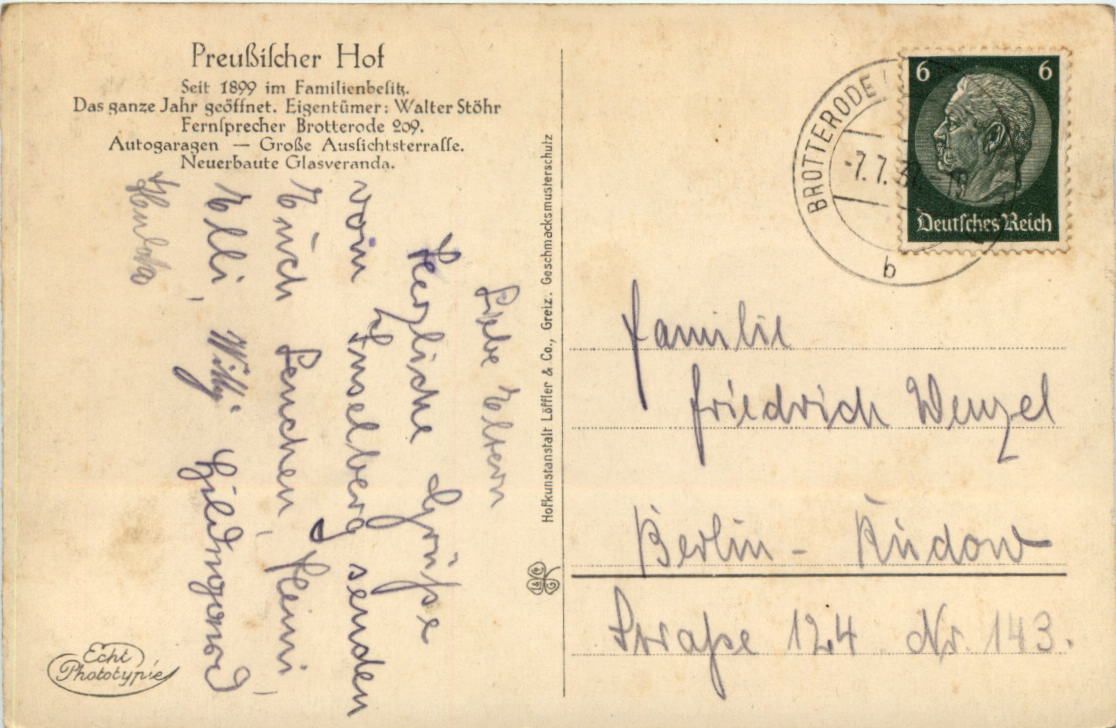 Preußischer Hof
Seit 1899 im Familienbesitz.
Das ganze Jahr geöffnet. Eigentümer: Walter Stöhr
Fernsprecher Brotterode 209.
Autogaragen — Große Aussichtsterrasse.
Neuerbaute Glasveranda.
Liebe Eltern
Herzliche Grüße
vom Inselberg senden
Euch Lenchen, Heini,
Elli, Willy
Hofkunstanstalt Löffler & Co., Greiz. Geschmacksmusterschutz
Echt
Phototypie
BROTTERODE
-7.7.
b
6 6
Deutsches Reich
Familie
Friedrich Wenzel
Berlin - Rudow
Straße 124 Nr. 143.